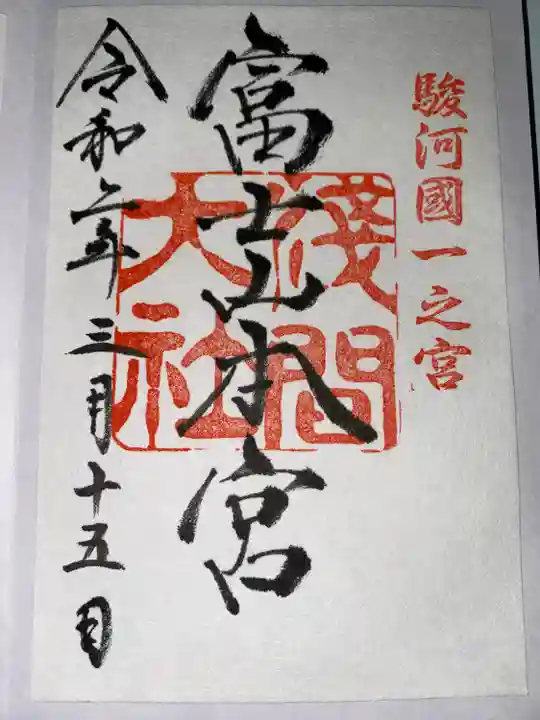 駿河國一之宮
富士山本宮
淺間
大社
令和二年三月十五日